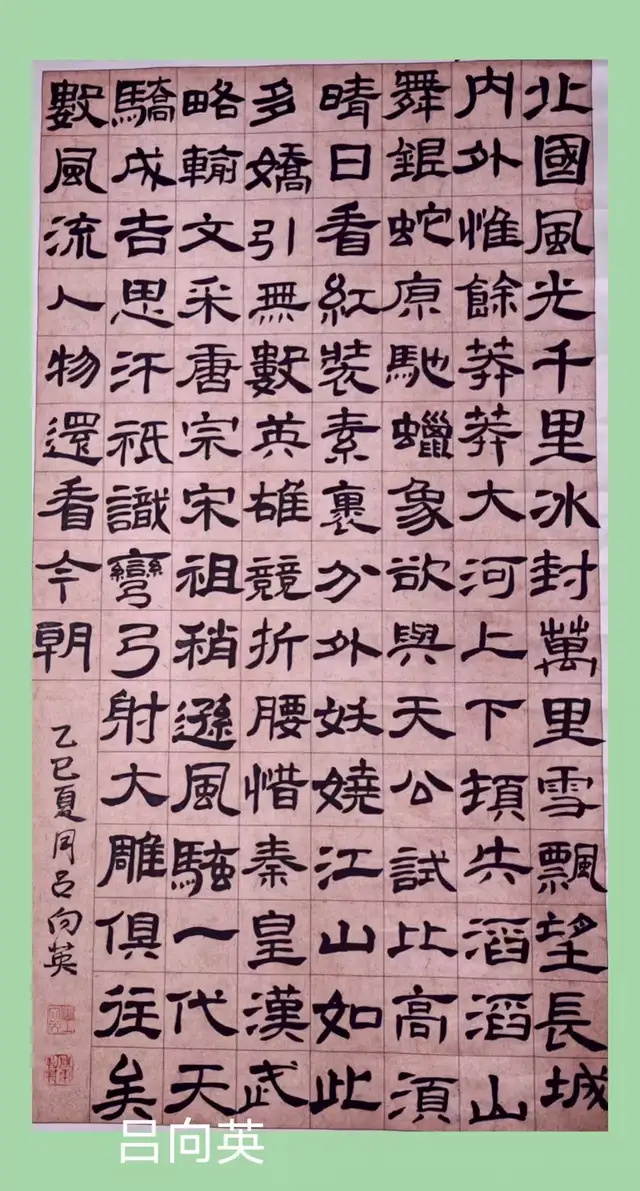 北國風光千里冰封萬里雪飄望長城
内外惟餘莽莽大河上下頓失滔滔山
舞銀蛇原馳蠟象欲與天公試比高須
晴日看紅裝素裹分外妖嬈江山如此
多嬌引無數英雄競折腰惜秦皇漢武
略輸文采唐宗宋祖稍遜風騷一代天
驕成吉思汗祇識彎弓射大雕俱往矣
數風流人物還看今朝
乙巳夏月吕向英
吕向英